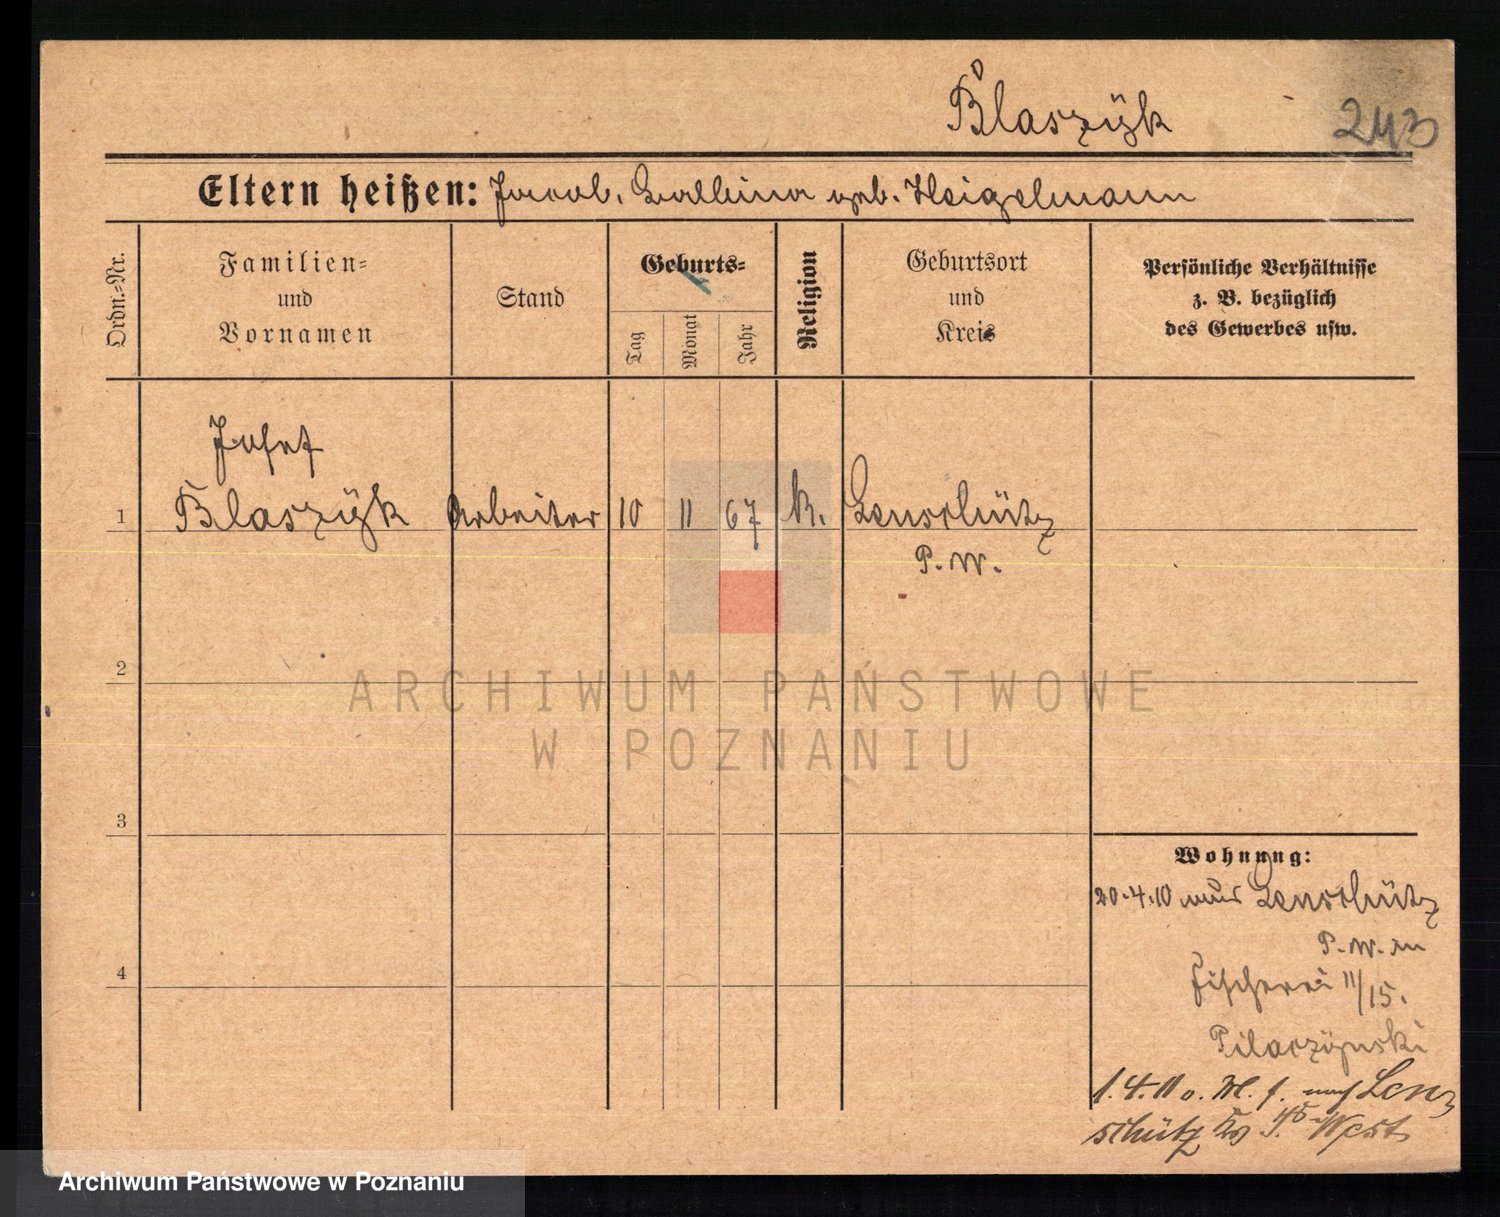 Blaszÿk
243
Eltern heißen: Jacob. Balbina geb. Heigelmann
Ordn.-Nr.
Familien-
und
Vornamen
Stand
Geburts-
Tag
Monat
Jahr
Religion
Geburtsort
und
Kreis
Persönliche Verhältnisse
z. B. bezüglich
des Gewerbes usw.
Josef
1 Blaszÿk Arbeiter 10 11 67 k. Lenschütz
P. W.
2
ARCHIWUM PAŃSTWOWE
W POZNANIU
3
Wohnung:
20.4.10 aus Lenschütz
P. W. in
4
Fischerei 11/15.
Pilaczÿnski
1.4.11 o. M. f. nach Len
schütz Kr P. West
Archiwum Państwowe w Poznaniu